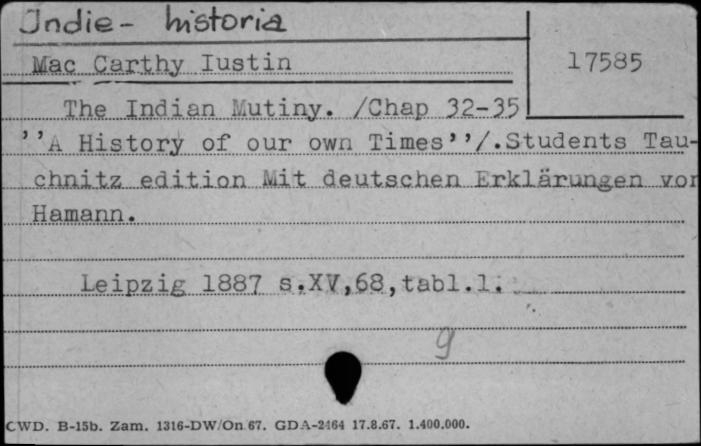 Indie - historia
Mac Carthy Iustin
17585
The Indian Mutiny. /Chap 32-35
’’A History of our own Times’’/.Students Tau-
chnitz edition Mit deutschen Erklärungen von
Hamann.
Leipzig 1887 s.XV,68,tabl.1.
9
CWD. B-15b. Zam. 1316-DW/On 67. GDA-2464 17.8.67. 1.400.000.